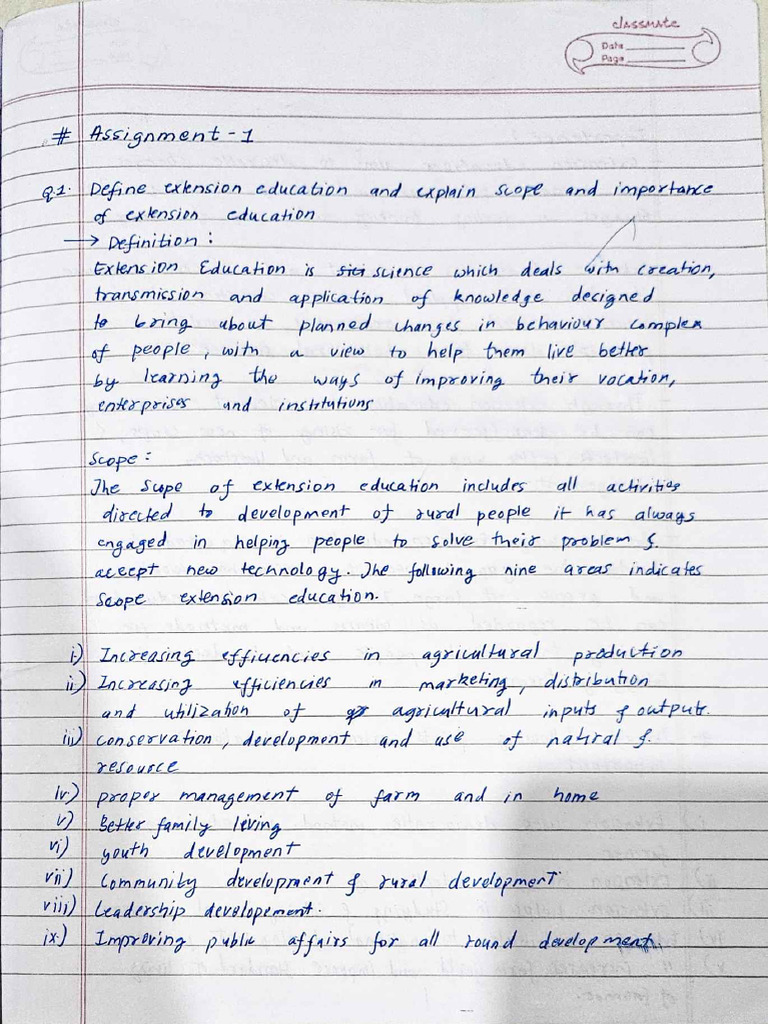 classmate
Date
Page
# Assignment - 1
Q.1. Define extension education and explain scope and importance
of extension education
→ Definition :
Extension Education is science which deals with creation,
transmission and application of knowledge designed
to bring about planned changes in behaviour complex
of people, with a view to help them live better
by learning the ways of improving their vocation,
enterprises and institutions
Scope :
The Scope of extension education includes all activities
directed to development of rural people it has always
engaged in helping people to solve their problem &
accept new technology. The following nine areas indicates
scope extension education.
i) Increasing efficiencies in agricultural production
ii) Increasing efficiencies in marketing, distribution
and utilization of agricultural inputs & outputs.
iii) conservation, development and use of natiral &
resource
iv) proper management of farm and in home
v) Better family living
vi) youth development
vii) Community development & rural development
viii) Leadership developement.
ix) Improving public affairs for all round development.